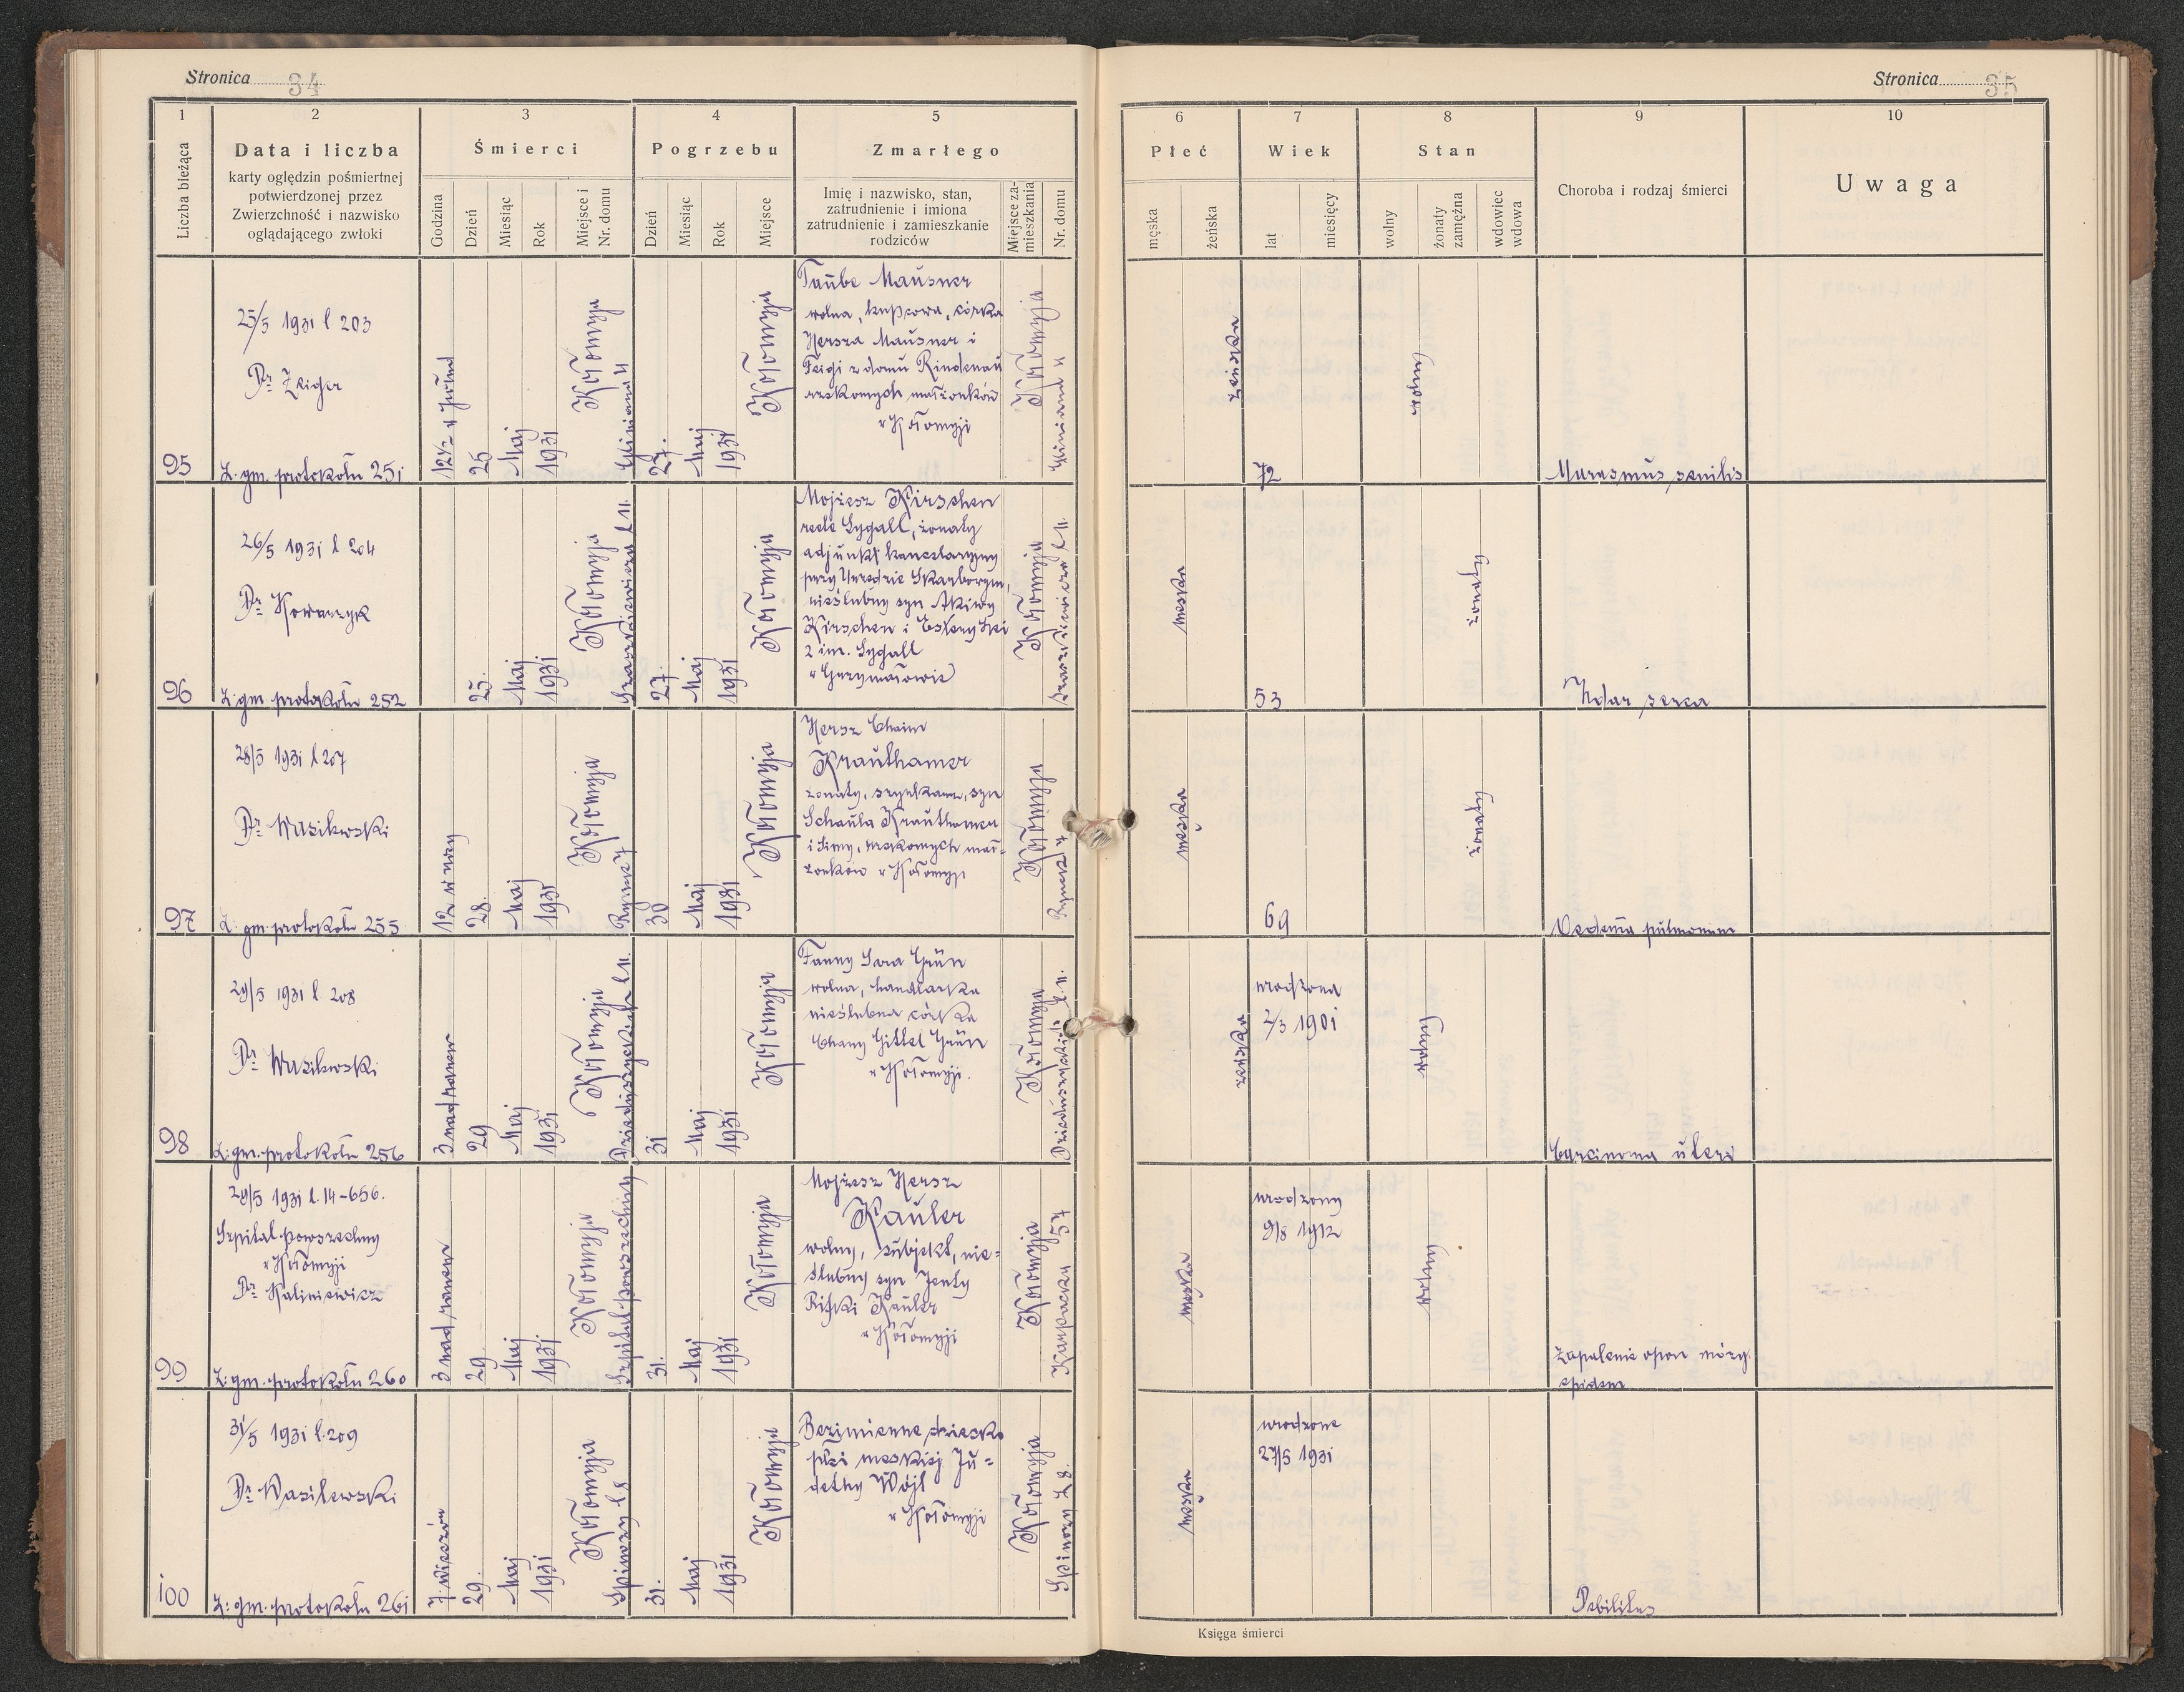 Stronica 34
1
2
3
4
5
Liczba bieżąca
Data i liczba
karty oględzin pośmiertnej
potwierdzonej przez
Zwierzchność i nazwisko
oglądającego zwłoki
Śmierci
Godzina
Dzień
Miesiąc
Rok
Miejsce i
Nr. domu
Pogrzebu
Dzień
Miesiąc
Rok
Miejsce
Zmarłego
Imię i nazwisko, stan,
zatrudnienie i imiona
zatrudnienie i zamieszkanie
rodziców
Miejsce za-
mieszkania
Nr. domu
95
25/5 1931 l 203
Dr Zeiger
L. gm. protokołu 251
12½ w połud
25
Maj
1931
Kołomyja
27.
Maj
1931
Kołomyja
Taube Mausner
wolna, kupcowa, córka
Hersza Mausner i
Feigi z domu Rindenau
małżonków
w Kołomyji
Kołomyja
96
26/5 1931 l 204
Dr Kowarzyk
L. gm. protokołu 252
25.
Maj
1931
Kołomyja
27.
Maj
1931
Kołomyja
Mojżesz Kirschen
recte Sygall, żonaty
adjunkt kancelaryjny
przy Urzędzie Skarbowym,
nieślubny syn Akiwy
Kirschen i Estery
2 im. Sygall
Kołomyja
97
28/5 1931 l 207
Dr Wasilewski
L. gm. protokołu 255
12 w nocy
28.
Maj
1931
Kołomyja
Rynek 7
30
Maj
1931
Kołomyja
Hersz Chaim
Krauthamer
żonaty, szynkarz, syn
Schaula Krauthamer
i Simy, mał-
żonków w Kołomyji
Kołomyja
Rynek 7
98
29/5 1931 l 208
Dr Wasilewski
L. gm. protokołu 256
3 nad ranem
29
Maj
1931
Kołomyja
Dzieduszyckich l 11.
31
Maj
1931
Kołomyja
Fanny Sara Grün
wolna, handlarka
nieślubna córka
Chany Gittel Grün
w Kołomyji.
Kołomyja
Dzieduszyckich l. 11.
99
29/5 1931 l. 14-656.
Szpital powszechny
w Kołomyji
Dr Kaliniewicz
L. gm. protokołu 260
3 nad ranem
29.
Maj
1931.
Kołomyja
Szpital powszechny
31.
Maj
1931
Kołomyja
Mojżesz Hersz
Kauler
wolny, subjekt, nie=
ślubny syn Jenty
Rifki Kauler
w Kołomyji
Kołomyja
Karpacka 57
100
31/5 1931 l. 209
Dr Wasilewski
L: gm. protokołu 261
7 wieczór
29.
Maj
1931
Kołomyja
Spinozy l. 8
31.
Maj
1931
Kołomyja
Bezimienne dziecko
płci męskiej Ju=
detky Wójt
w Kołomyji
Kołomyja
Spinozy L 8.
Stronica 35
6
7
8
9
10
Płeć
męska
żeńska
Wiek
lat
miesięcy
Stan
wolny
żonaty
zamężna
wdowiec
wdowa
Choroba i rodzaj śmierci
Uwaga
żeńska
72
wolny
Marasmus senilis
męska
53
żonaty
Udar serca
męska
69
żonaty
Oedema pulmonum
żeńska
urodzona
2/3 1901
wolny
Carcinoma uteri
męska
urodzony
9/8 1912
wolny
Zapalenie opon mózg.
epidem
męska
urodzone
27/5 1931
Debilitas
Księga śmierci